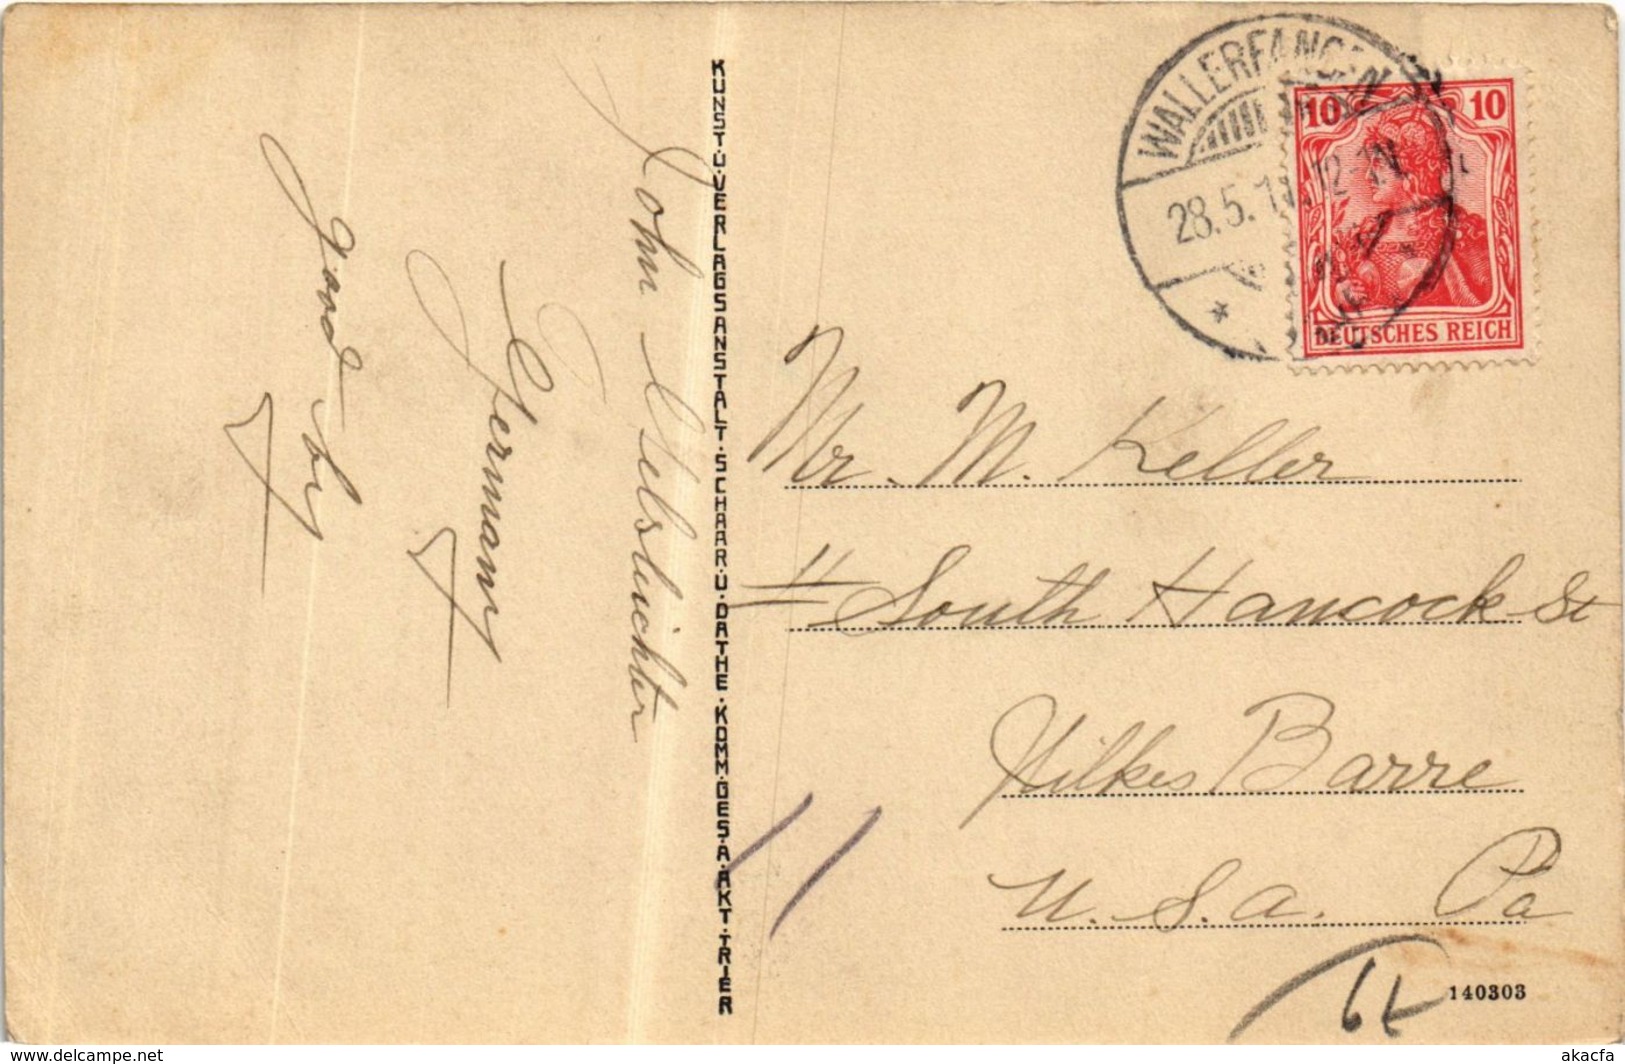 John
Germany
good by
KUNST·U·VERLAGSANSTALT·SCHAAR·U·DATHE·KOMM·GES·A·AKT·TRIER
WALLERFANGEN
28.5.
10 10
DEUTSCHES REICH
Mr. M. Keller
11 South Hancock St
Wilkes Barre
U.S.A. Pa
140303
delcampe.net
akacfa